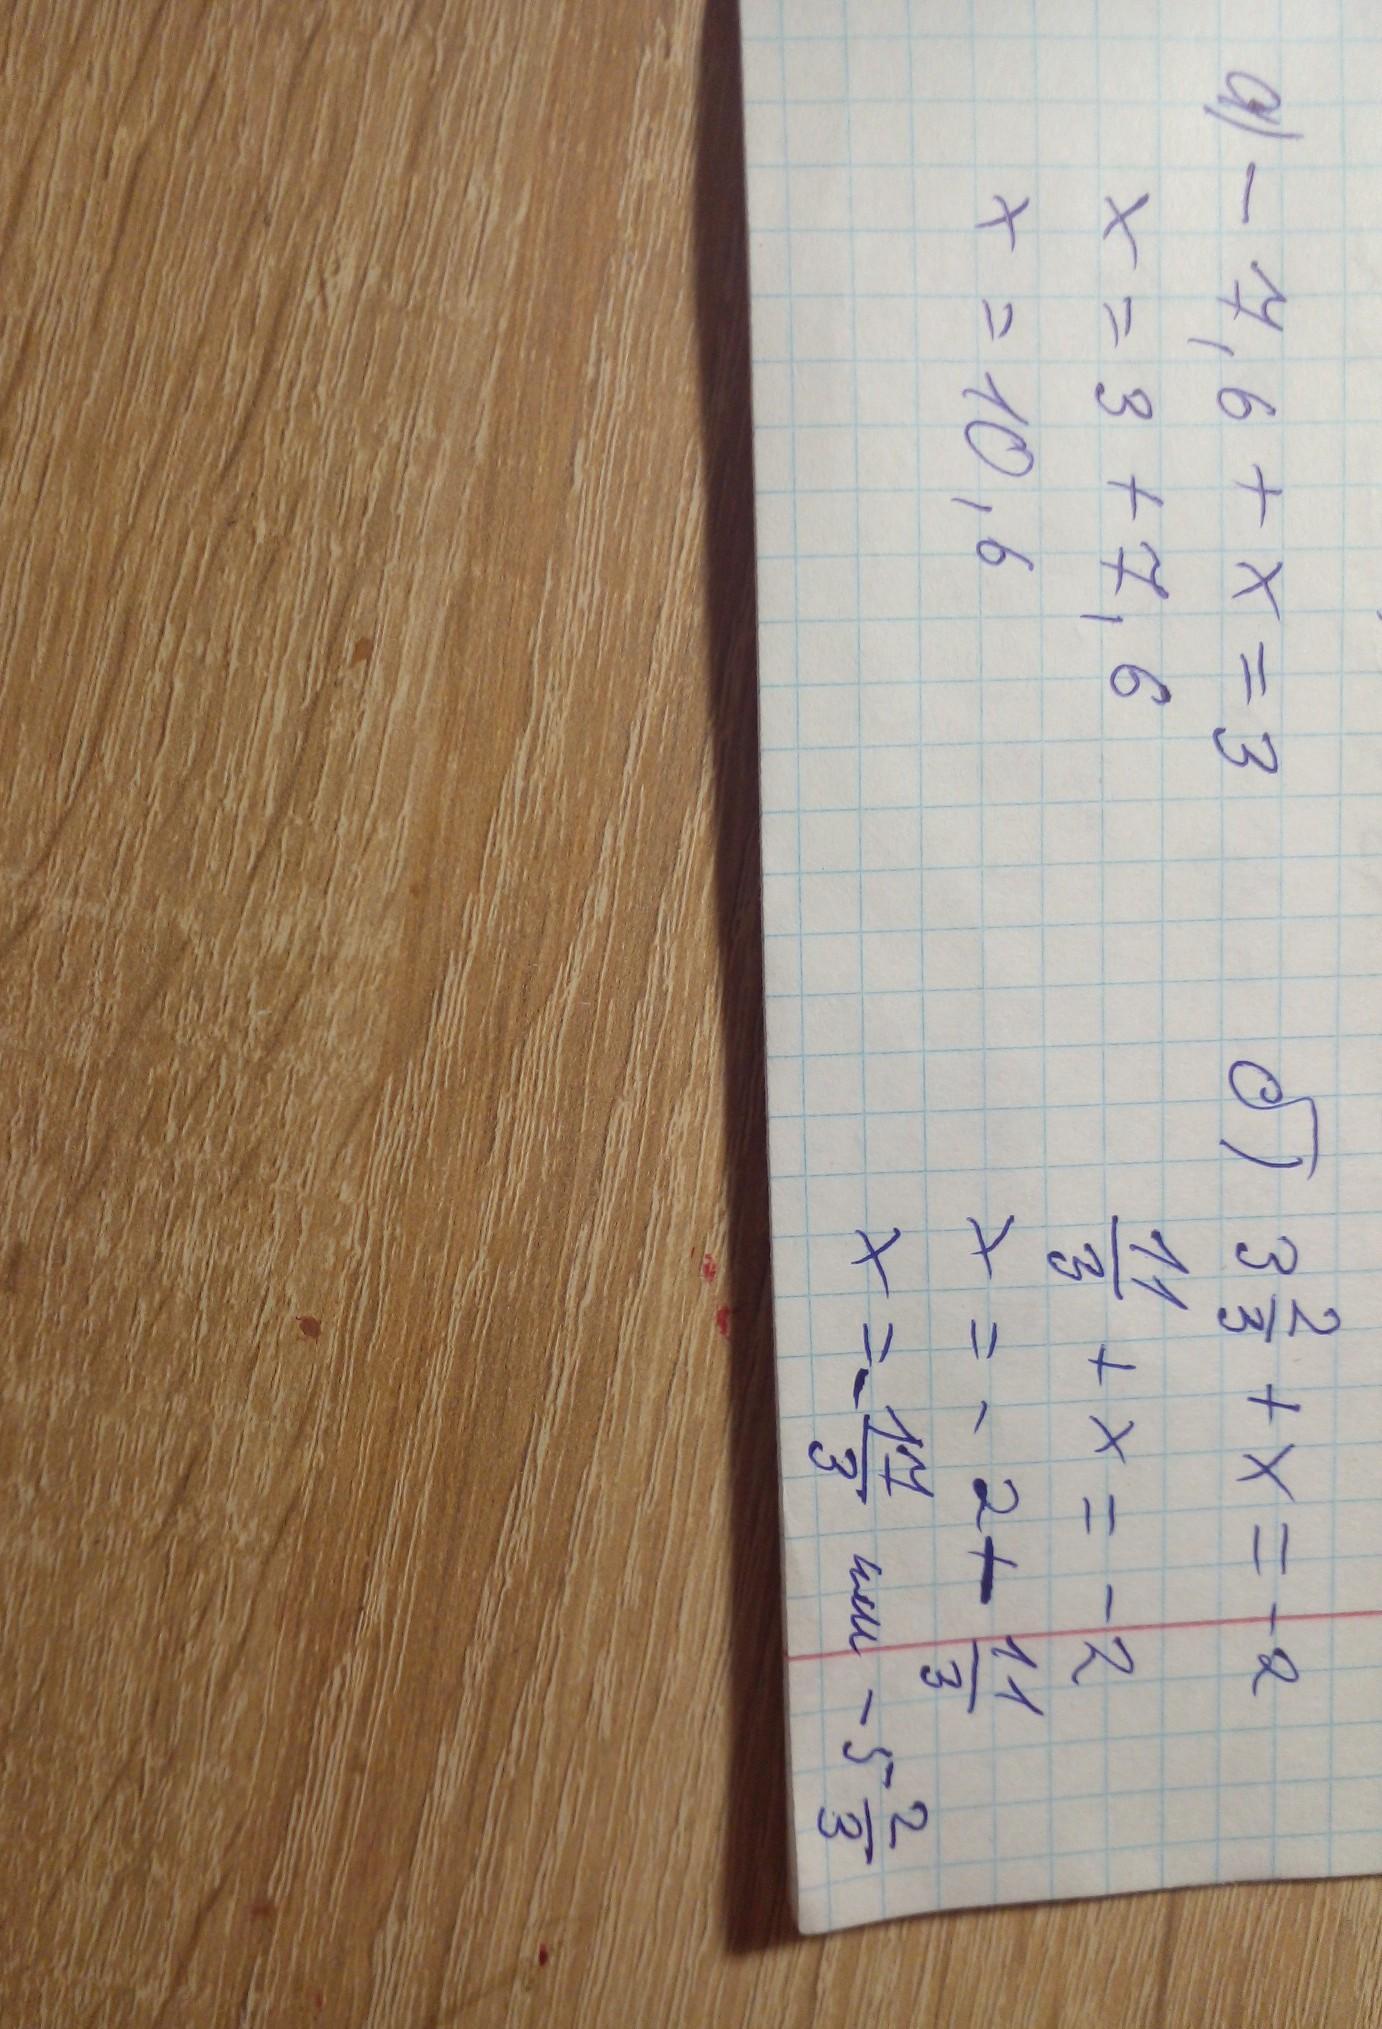 а) - 7,6 + x = 3
x = 3 + 7,6
x = 10,6
б) 3 2/3 + x = -2
11/3 + x = -2
x = - 2 + 11/3
x = - 17/3 или - 5 2/3